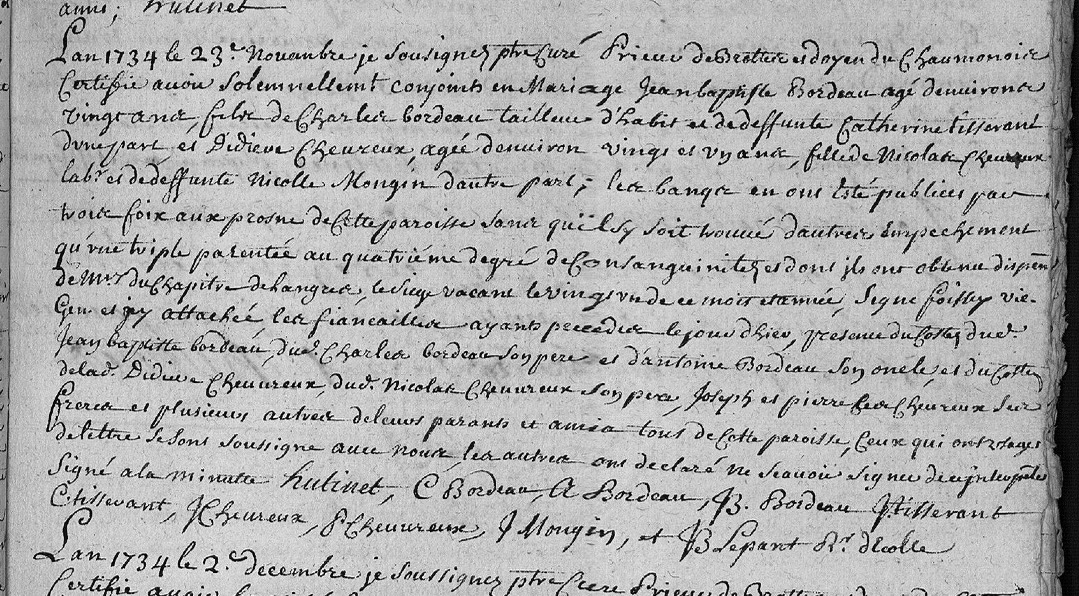 anni, hutinet
Lan 1734 le 23.e Novembre je soussignez ptre Curé Prieur de Brottes et doyen du Chaumonois
Certifie avoir solemnellemt conjoints en Mariage Jean baptiste Bordeau agé denviron
vingt ans, fils de Charles bordeau tailleur d'habit et de deffunte Catherine tisserant
dune part et Didiere Cheureux, agée denviron vingt et un ans, fille de Nicolas Cheureux
labr. et de deffunte Nicolle Mongin dautre part; les bangs en ont esté publiés par
trois foix aux prosne de Cette paroisse sans qu'il sy soit trouvé dautres Empechement
qu'une triple parentée au quatriéme degré de Consanguinité et dont ils ont obtenu dispense
de Mrs du Chapitre de langres, le siege vacant le vingt un de ce mois et année, signe foissey vic.
Gen. et jcy attachée les fiancailles ayants precedées le jour dhier, presence du Costé dud.
Jean baptiste bordeau, dud. Charles bordeau son pere et d'antoine Bordeau son oncle, et du Costé
de lad. Didiere Cheureux, dud. Nicolas Cheureux son pere, Joseph et pierre les Cheureux ses
freres et plusieurs autres de leurs parants et amis tous de Cette paroisse, Ceux qui ont usages
de lettre se sont soussigne avec nous, les autres ont declaré ne scavoir signer de ce interpelés
signé a la minutte hutinet, C Bordeau, A Bordeau, JB. Bordeau J tisserant
C tisserant, J Cheureux, P Cheureux, J Mongin, et JB Lepant Rr. dEcolle
Lan 1734 le 2.e decembre je soussignez ptre Curé Prieur de
Certifie avoir